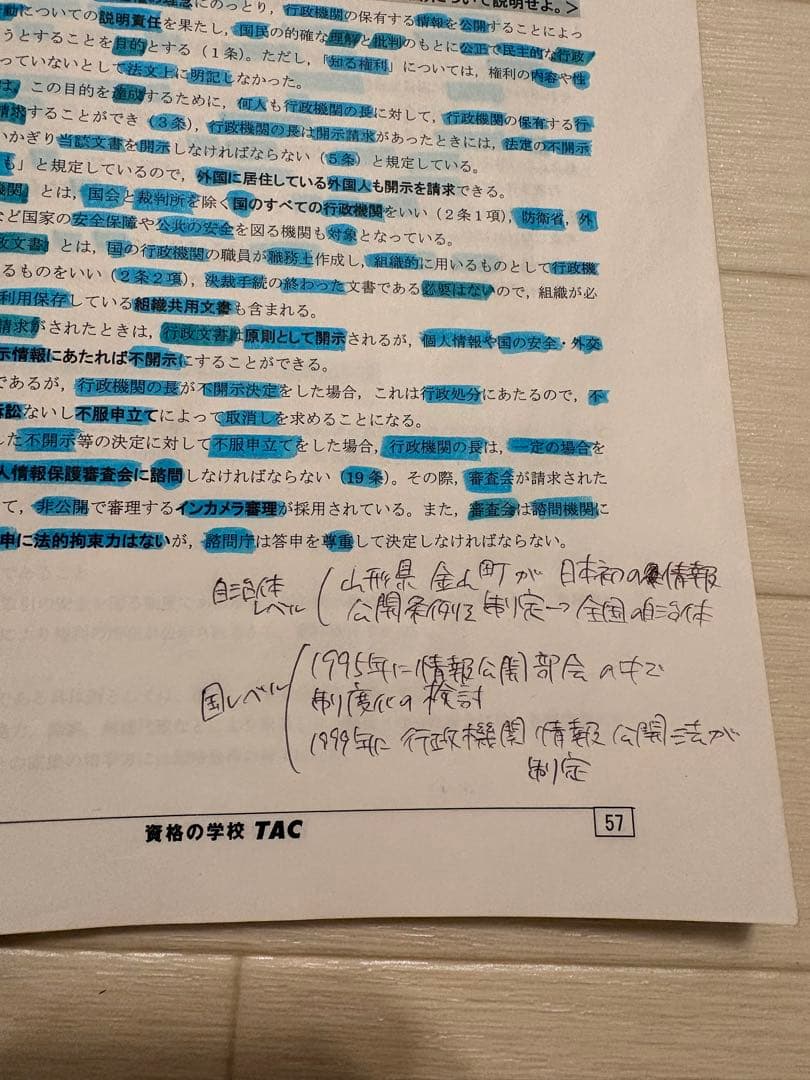 について説明せよ。>
の理念にのっとり，行政機関の保有する情報を公開することによっ
動についての説明責任を果たし，国民の的確な理解と批判のもとに公正で民主的な行政
うとすることを目的とする（1条）。ただし，「知る権利」については，権利の内容や性
っていないとして法文上に明記しなかった。
は，この目的を達成するために，何人も行政機関の長に対して，行政機関の保有する行
請求することができ（3条），行政機関の長は開示請求があったときには，法定の不開示
いかぎり当該文書を開示しなければならない（5条）と規定している。
も」と規定しているので，外国に居住している外国人も開示を請求できる。
機関」とは，国会と裁判所を除く国のすべての行政機関をいい（2条1項），防衛省，外
など国家の安全保障や公共の安全を図る機関も対象となっている。
政文書」とは，国の行政機関の職員が職務上作成し，組織的に用いるものとして行政機
るものをいい（2条2項），決裁手続の終わった文書である必要はないので，組織が必
利用保存している組織共用文書も含まれる。
請求がされたときは，行政文書は原則として開示されるが，個人情報や国の安全・外交
示情報にあたれば不開示にすることができる。
であるが，行政機関の長が不開示決定をした場合，これは行政処分にあたるので，不
訴訟ないし不服申立てによって取消しを求めることになる。
した不開示等の決定に対して不服申立てをした場合，行政機関の長は，一定の場合を
人情報保護審査会に諮問しなければならない（19条）。その際，審査会が請求された
て，非公開で審理するインカメラ審理が採用されている。また，審査会は諮問機関に
申に法的拘束力はないが，諮問庁は答申を尊重して決定しなければならない。
自治体レベル（山形県金山町が日本初の情報
公開条例を制定→全国の自治体
国レベル（1995年に情報公開部会の中で
制度化の検討
1999年に行政機関情報公開法が
制定
資格の学校 TAC
57